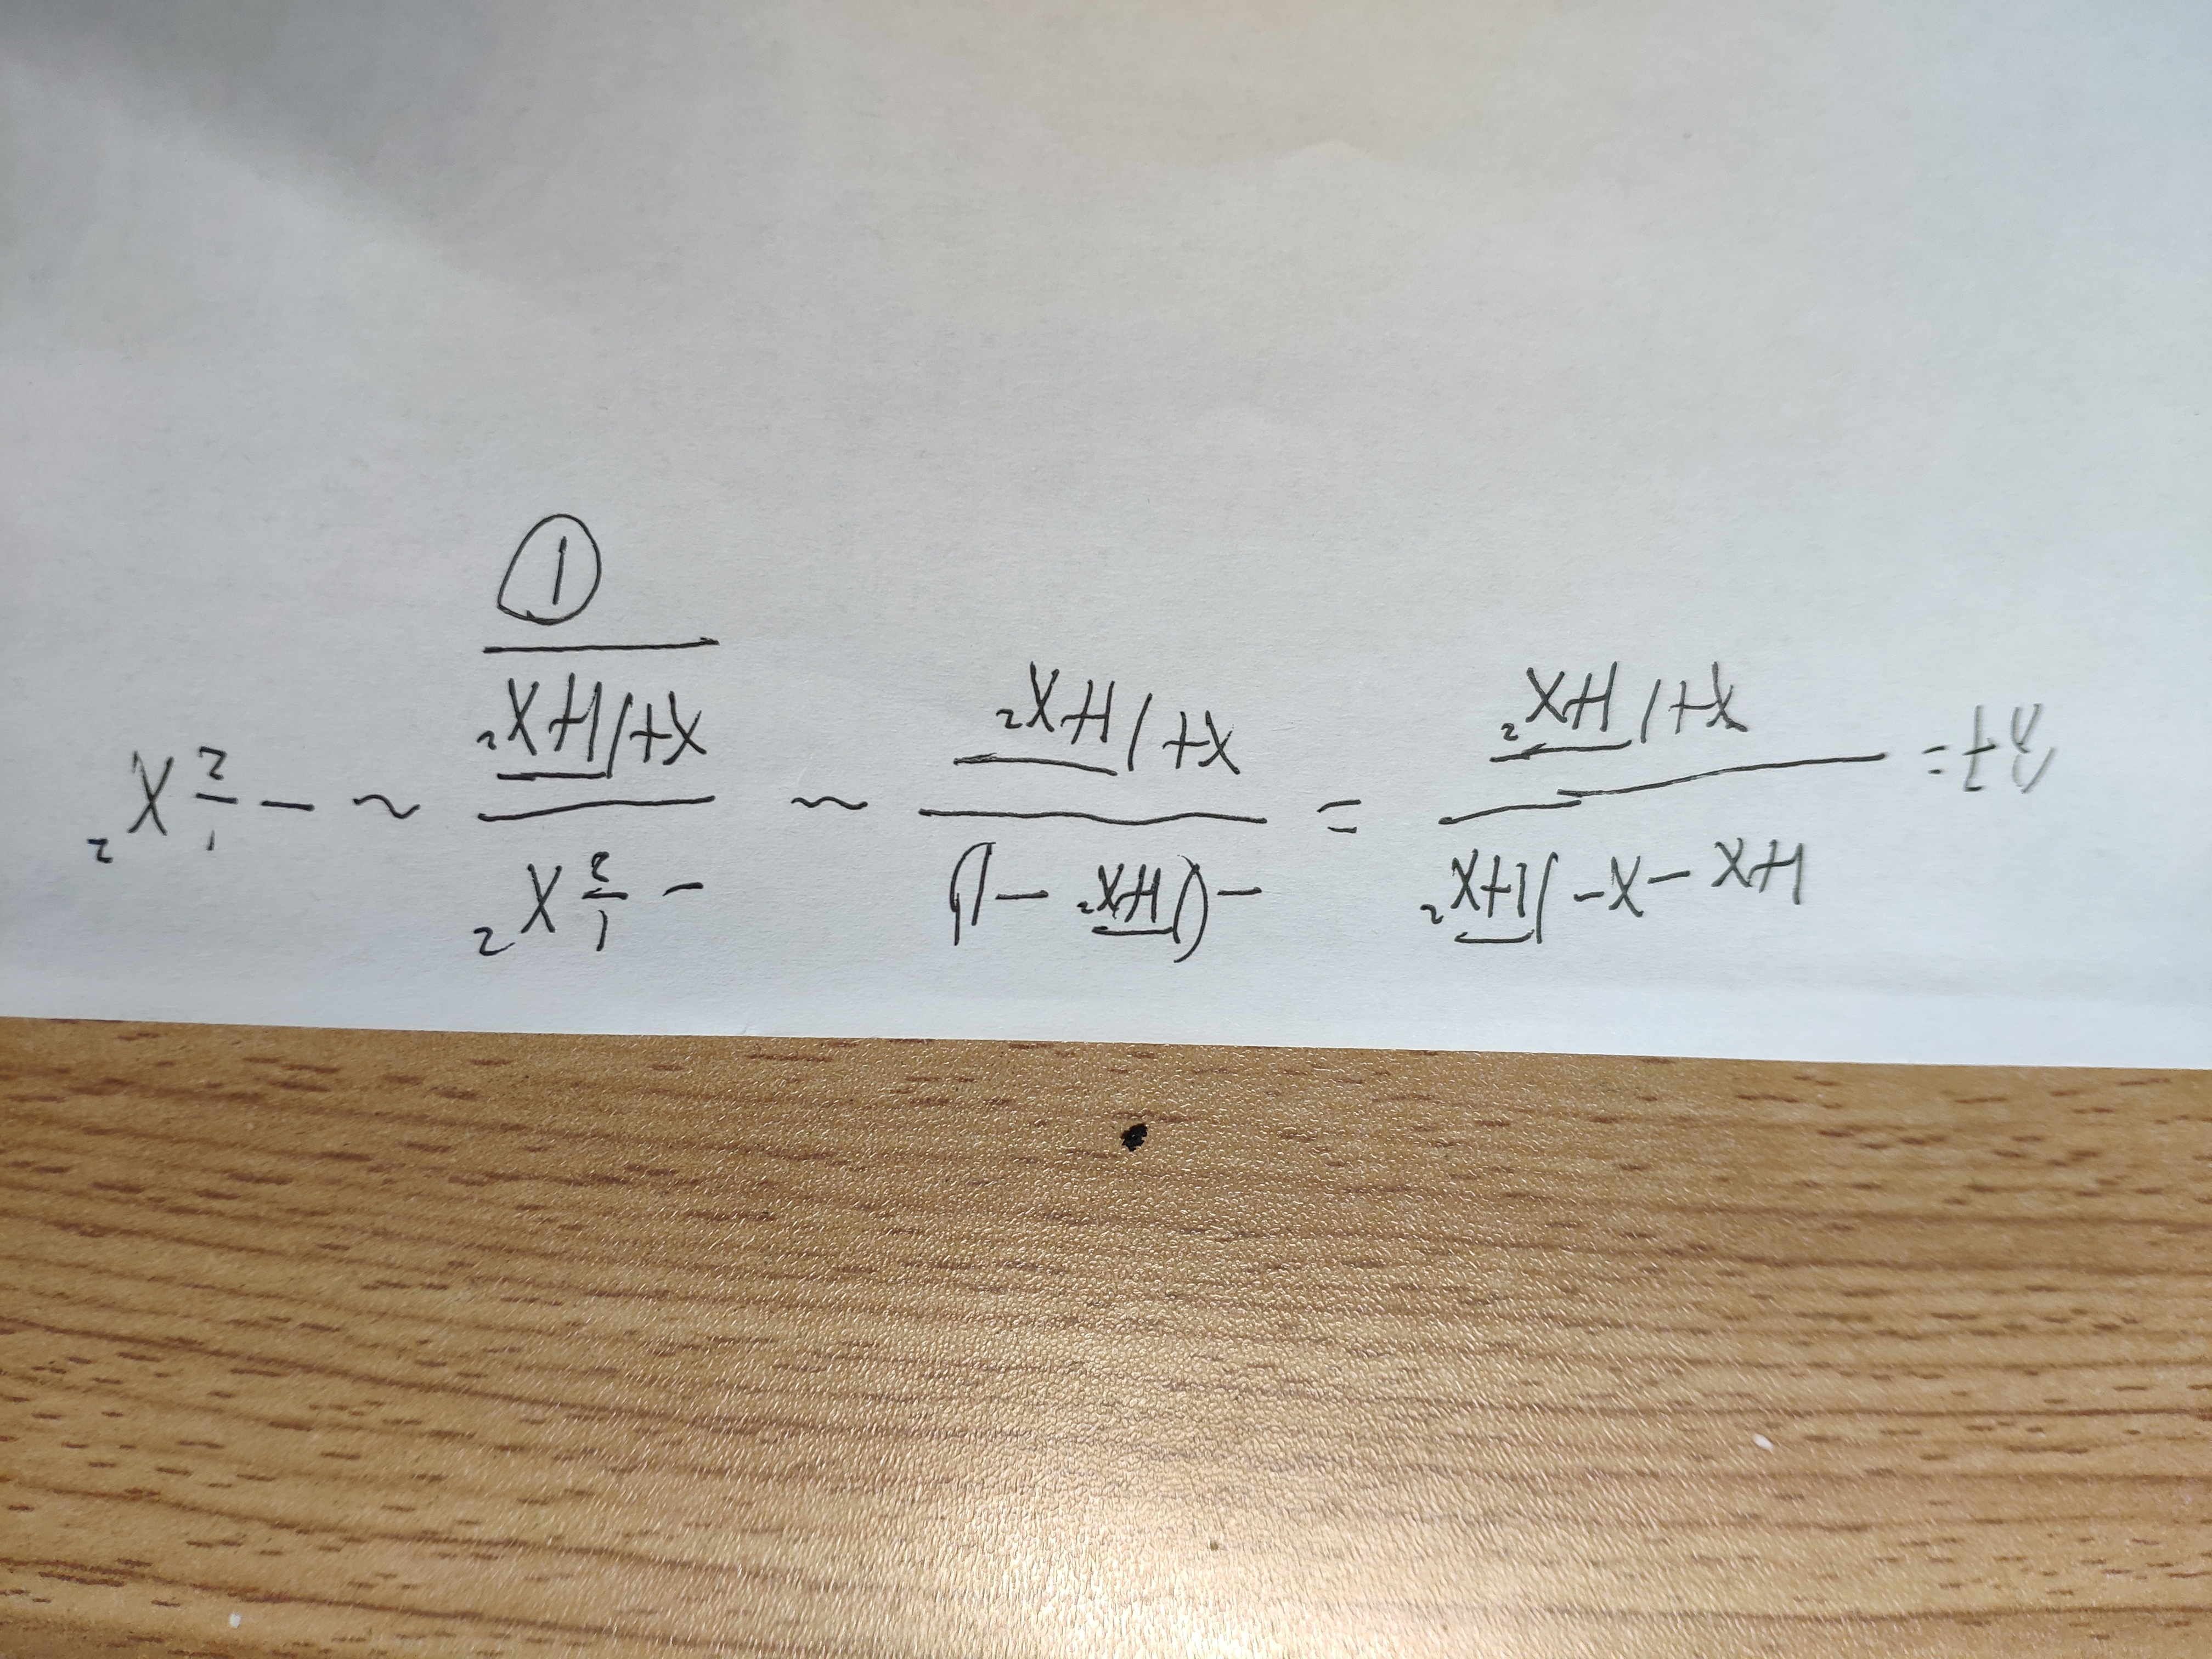 = \frac{1+x-x-\sqrt{1+x^2}}{x+\sqrt{1+x^2}} = \frac{-(\sqrt{1+x^2}-1)}{x+\sqrt{1+x^2}} ~ \frac{-\frac{1}{2}x^2}{x+\sqrt{1+x^2}} ~ -\frac{1}{2}x^2
①